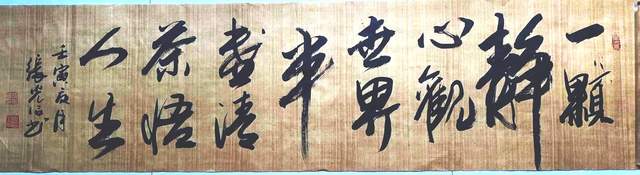 一顆
靜
心觀
世界
半
壺清
茶悟
人生
壬寅夏月
張光书